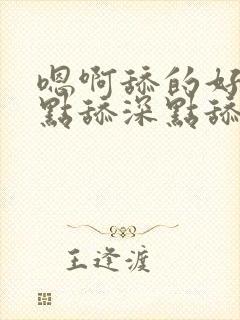 嗯啊舔的好
點舔深點舔
王逢渡